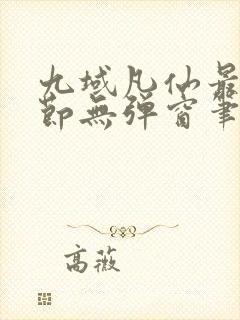 九域凡仙最
節無彈窗筆
高薇